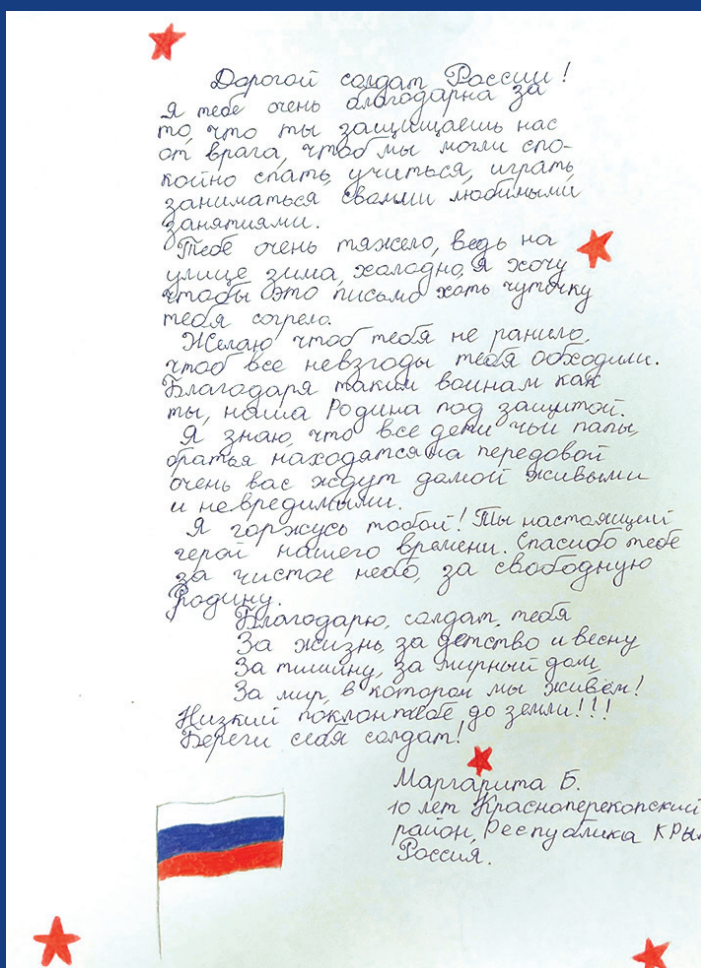 Дорогой солдат России!
Я тебе очень благодарна за
то, что ты защищаешь нас
от врага, чтоб мы могли спо-
койно спать, учиться, играть,
заниматься своими любимыми
занятиями.
Тебе очень тяжело, ведь на
улице зима, холодно, я хочу
чтобы это письмо хоть чуточку
тебя согрело.
Желаю чтоб тебя не ранило,
чтоб все невзгоды тебя обходили.
Благодаря таким воинам как
ты, наша Родина под защитой.
Я знаю, что все дети чьи папы,
братья находятся на передовой
очень вас ждут домой живыми
и невредимыми.
Я горжусь тобой! Ты настоящий
герой нашего времени. Спасибо тебе
за чистое небо, за свободную
Родину.
Благодарю, солдат, тебя
За жизнь, за детство и весну
За тишину, за мирный дом,
За мир, в котором мы живём!
Низкий поклон тебе до земли!!!
Береги себя солдат!
Маргарита Б.
10 лет Красноперекопский
район, Республика КРЫ
Россия.